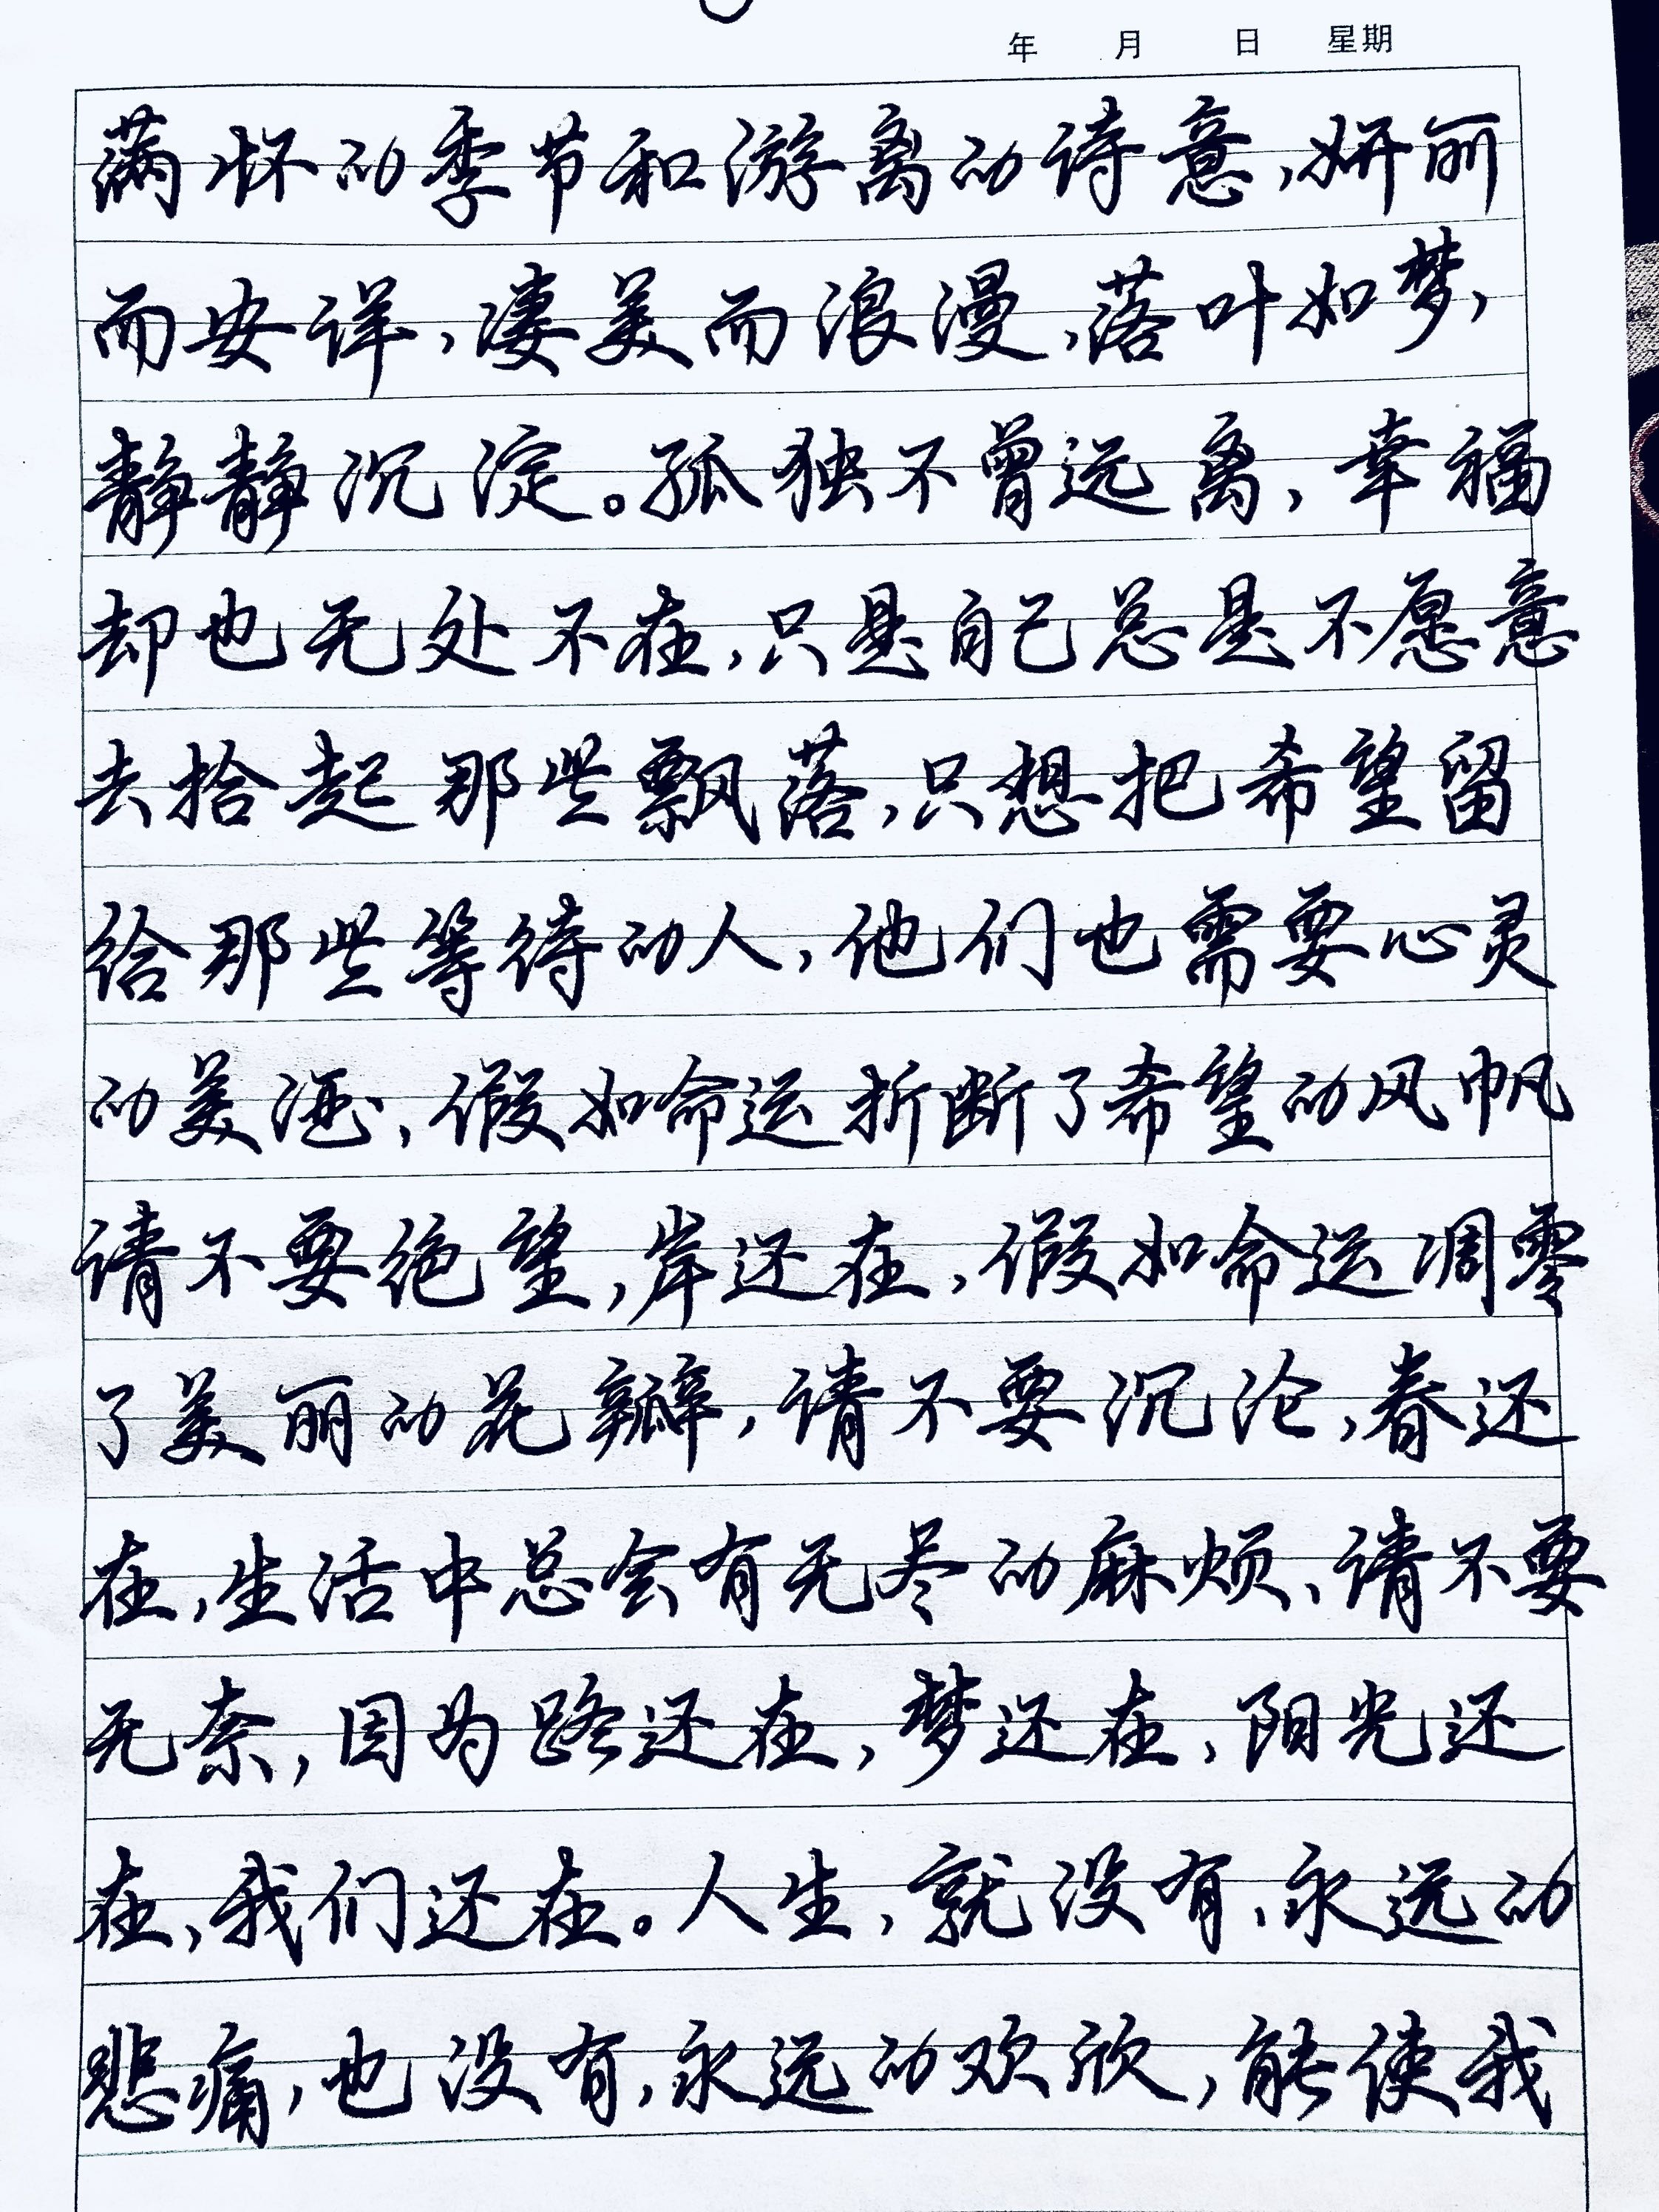 年 月 日 星期
满怀的季节和游离的诗意,妍丽
而安详,凄美而浪漫,落叶如梦,
静静沉淀。孤独不曾远离,幸福
却也无处不在,只是自己总是不愿意
去拾起那些飘落,只想把希望留
给那些等待的人,他们也需要心灵
的美酒,假如命运折断了希望的风帆
请不要绝望,岸还在,假如命运凋零
了美丽的花瓣,请不要沉沦,春还
在,生活中总会有无尽的麻烦、请不要
无奈,因为路还在,梦还在,阳光还
在,我们还在。人生,就没有,永远的
悲痛,也没有,永远的欢欣,能使我